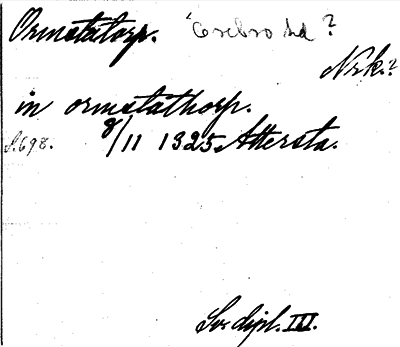 Ormstatorp. Örebro ld?
Nrk.?
in ormstathorp.
s. 698. 8/11 1325 Attersta.
Sv. dipl. III.